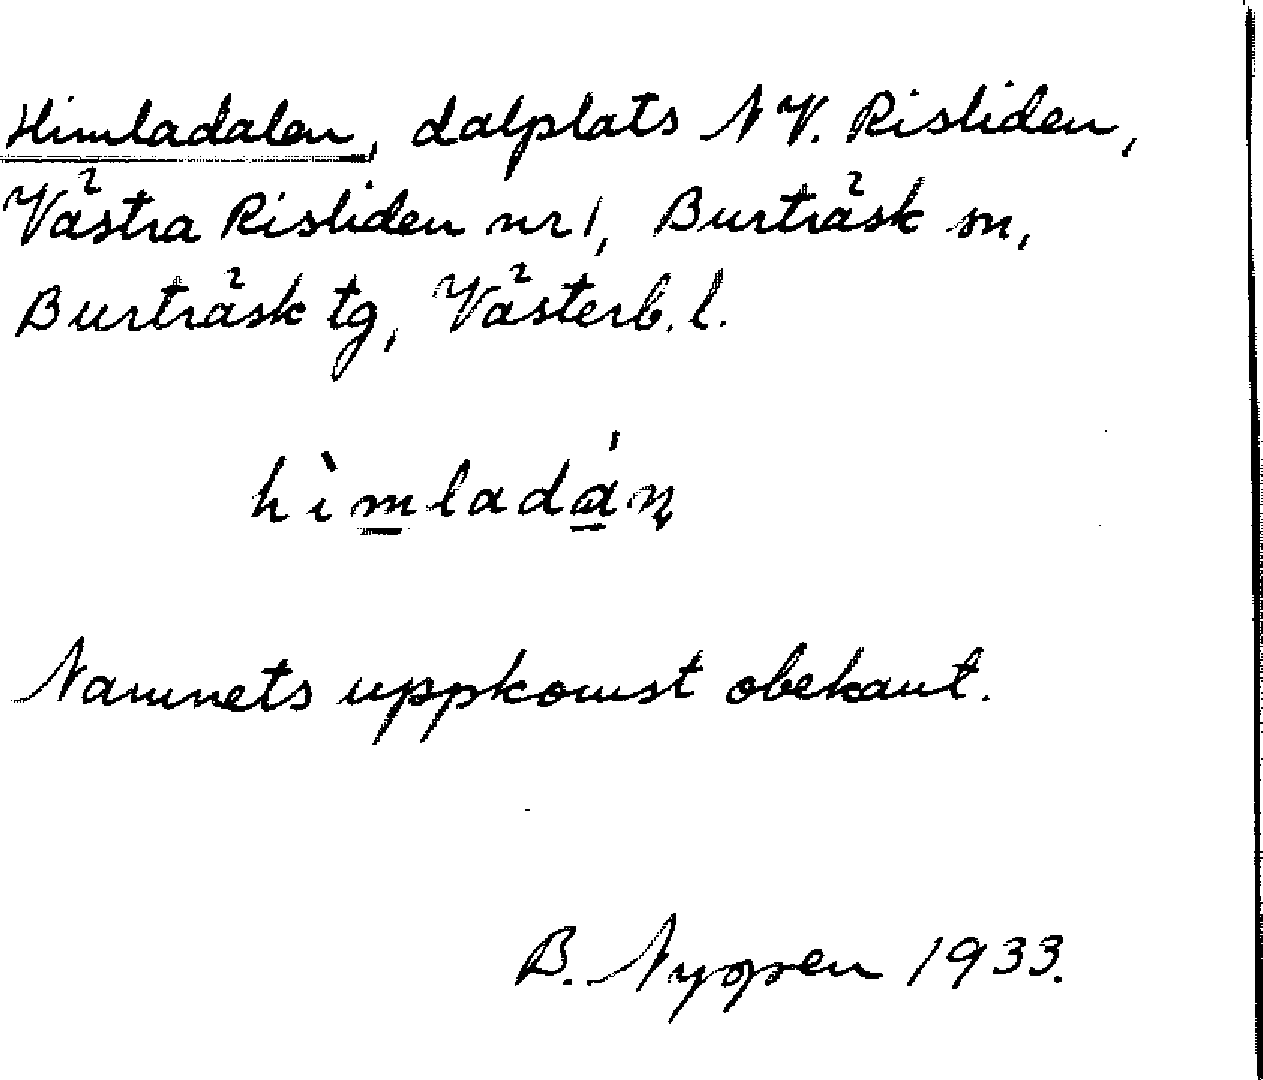 Himladalen, dalplats NV. Risliden,
Västra Risliden nr 1, Burträsk sn,
Burträsk tg, Västerb. l.
hìmladáṇ
Namnets uppkomst obekant.
B. Nygren 1933.